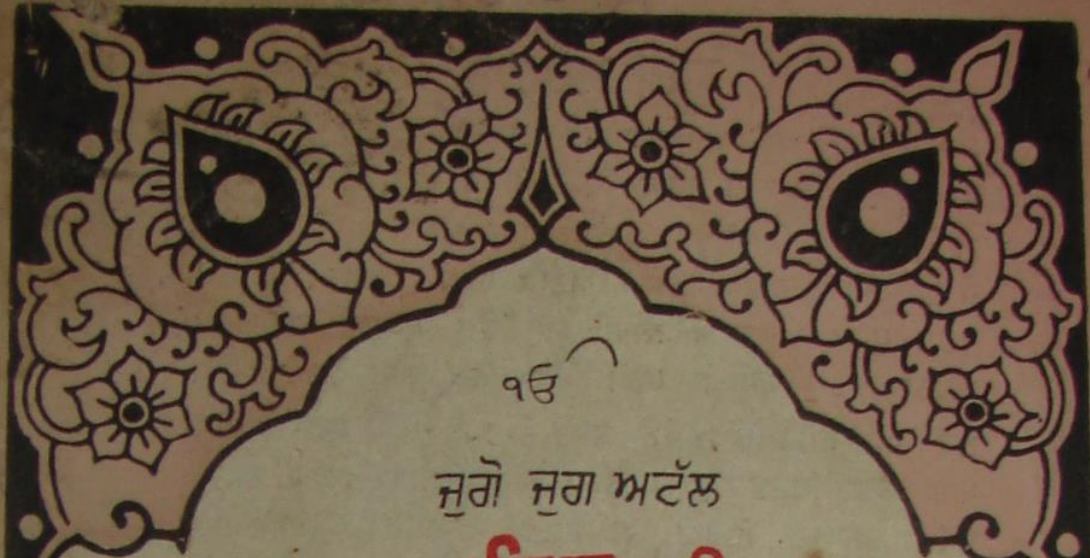 ੴ
ਜੁਗੋ ਜੁਗ ਅਟੱਲ